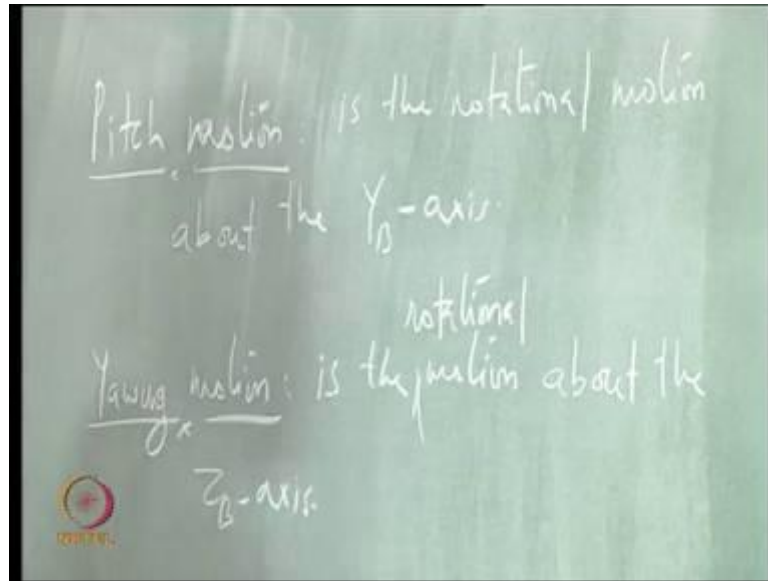 Pitch motion: is the rotational motion
about the Y_B-axis.
rotational
Yawing motion: is the motion about the
Z_B-axis.